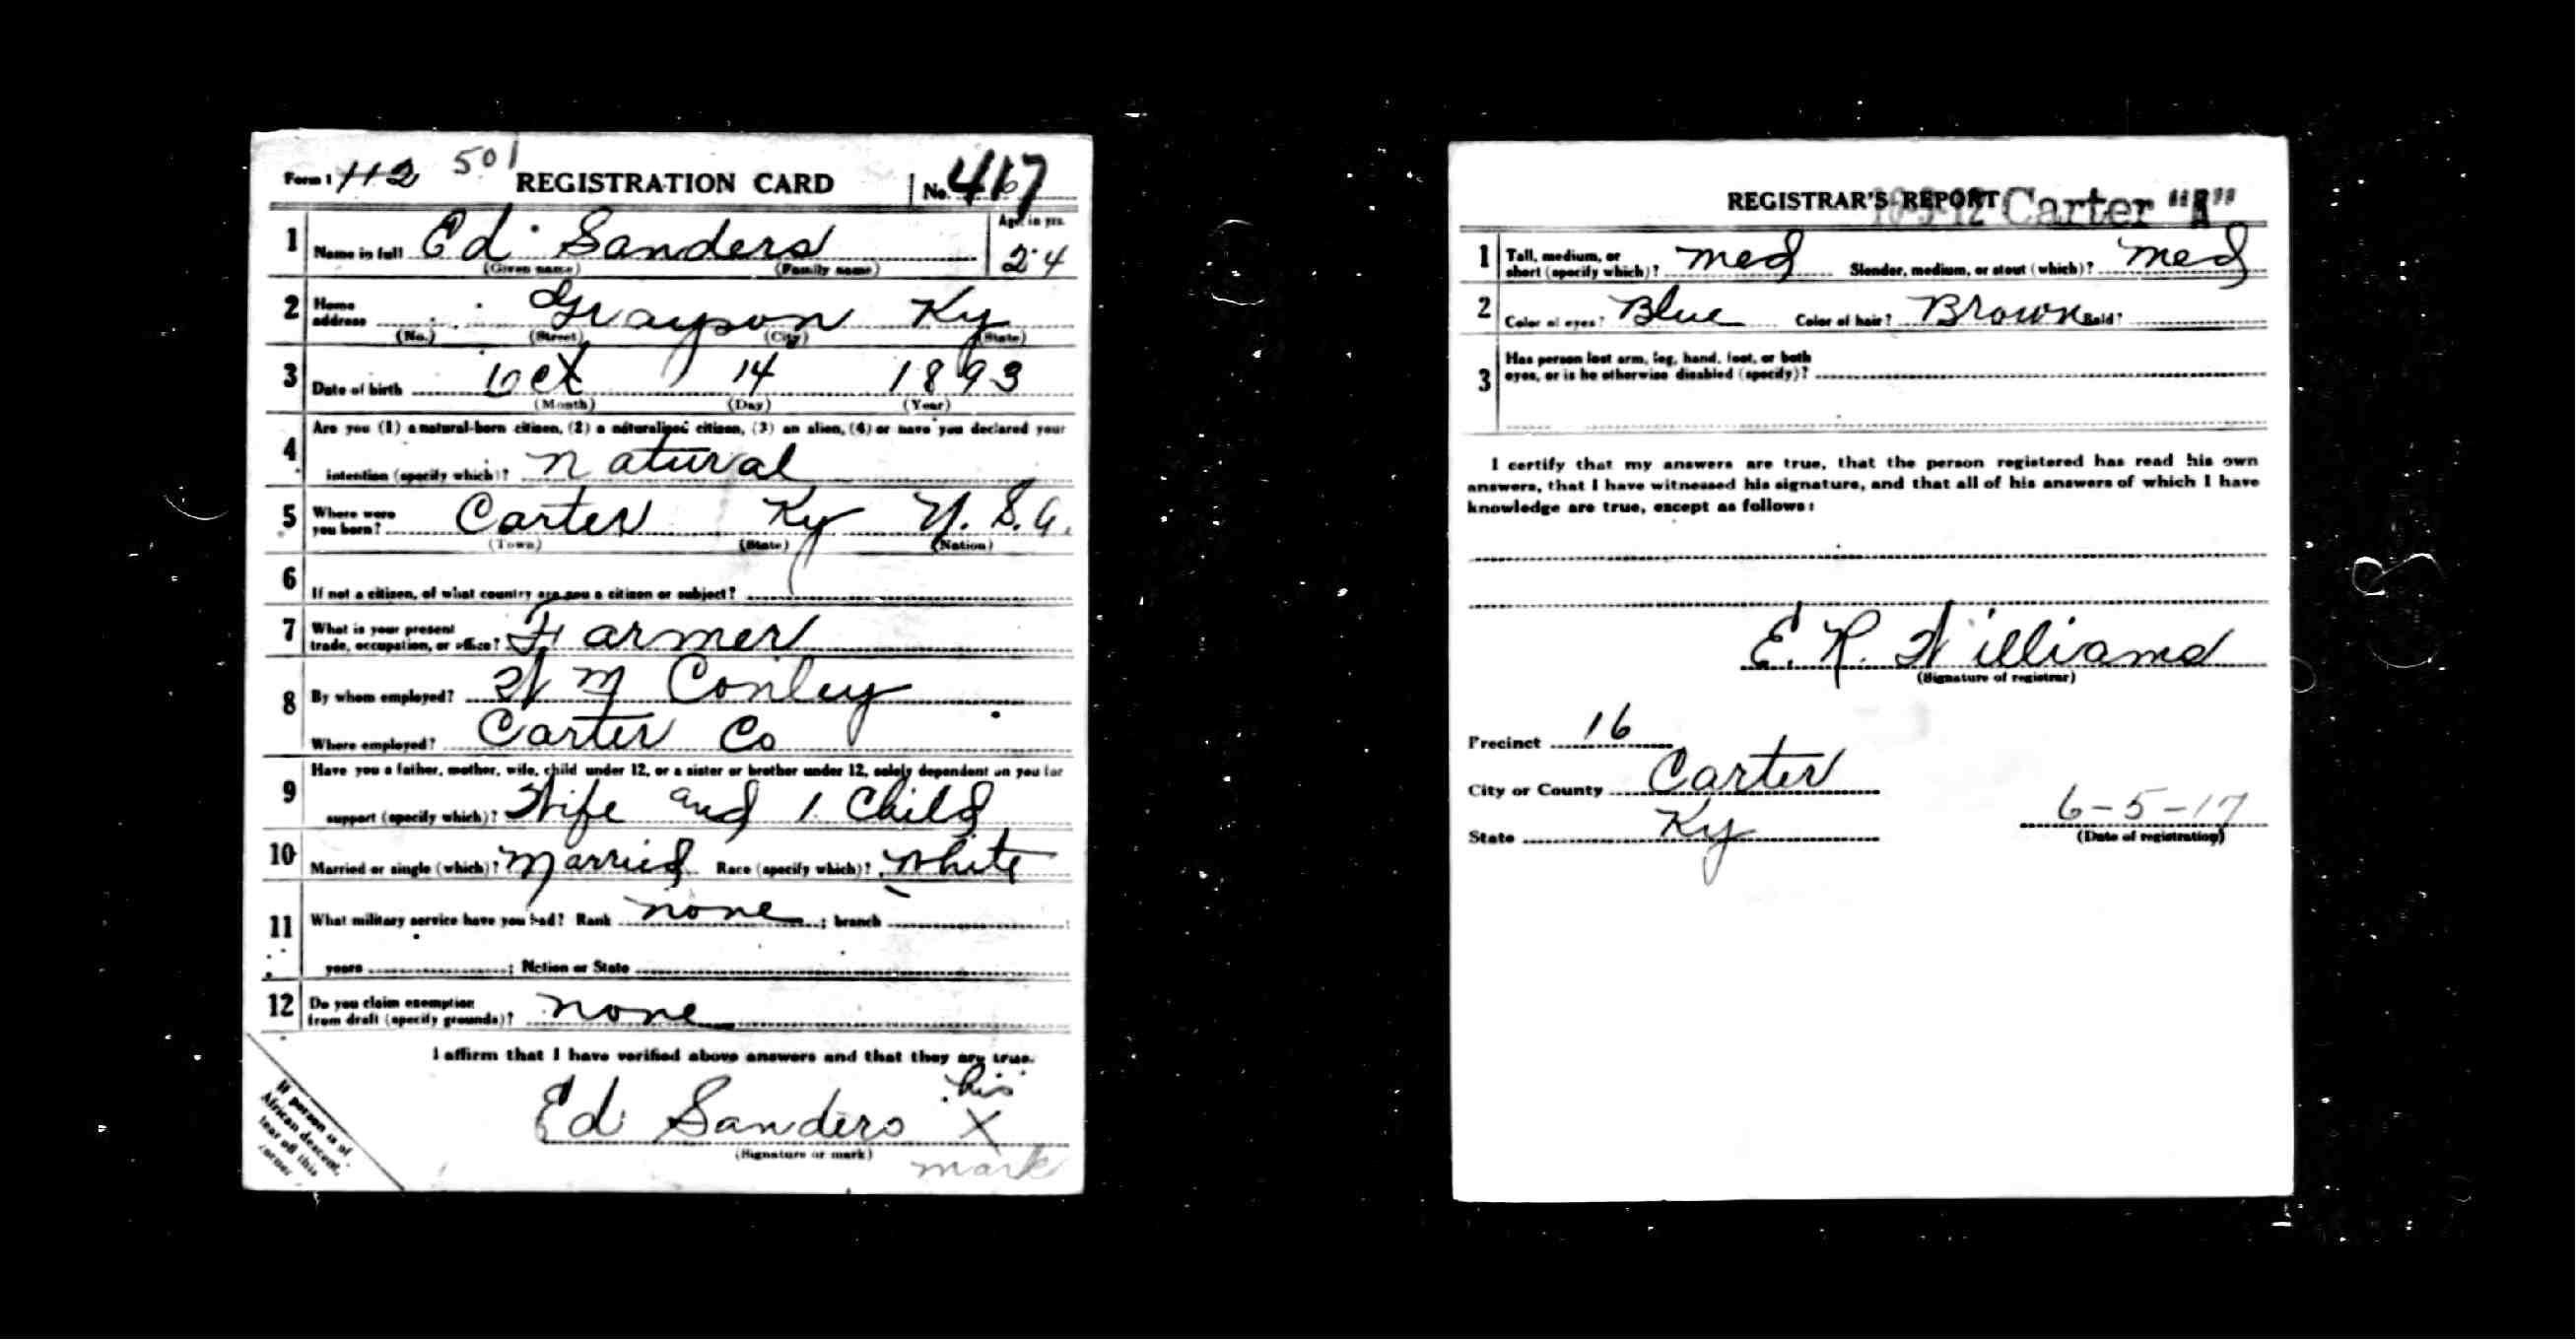 Form 1 112 501 REGISTRATION CARD No. 417
1 Name in full Ed Sanders Age, in yrs. 24
(Given name) (Family name)
2 Home address Grayson Ky
(No.) (Street) (City) (State)
3 Date of birth Oct 14 1893
(Month) (Day) (Year)
4 Are you (1) a natural-born citizen, (2) a naturalized citizen, (3) an alien, (4) or have you declared your
intention (specify which)? natural
5 Where were you born? Carter Ky U. S. A.
(Town) (State) (Nation)
6 If not a citizen, of what country are you a citizen or subject?
7 What is your present trade, occupation, or office? Farmer
8 By whom employed? Wm Conley
Where employed? Carter Co
9 Have you a father, mother, wife, child under 12, or a sister or brother under 12, solely dependent on you for
support (specify which)? Wife and 1 Child
10 Married or single (which)? Married Race (specify which)? White
11 What military service have you had? Rank none ; branch
years ; Nation or State
12 Do you claim exemption from draft (specify grounds)? none
I affirm that I have verified above answers and that they are true.
his
Ed Sanders X
(Signature or mark) mark
If person is of
African descent,
tear off this
corner
REGISTRAR'S REPORT Carter "A"
1 Tall, medium, or short (specify which)? med Slender, medium, or stout (which)? med
2 Color of eyes? Blue Color of hair? Brown Bald?
3 Has person lost arm, leg, hand, foot, or both
eyes, or is he otherwise disabled (specify)?
I certify that my answers are true, that the person registered has read his own
answers, that I have witnessed his signature, and that all of his answers of which I have
knowledge are true, except as follows:
E. R. Williams
(Signature of registrar)
Precinct 16
City or County Carter
State Ky
6-5-17
(Date of registration)